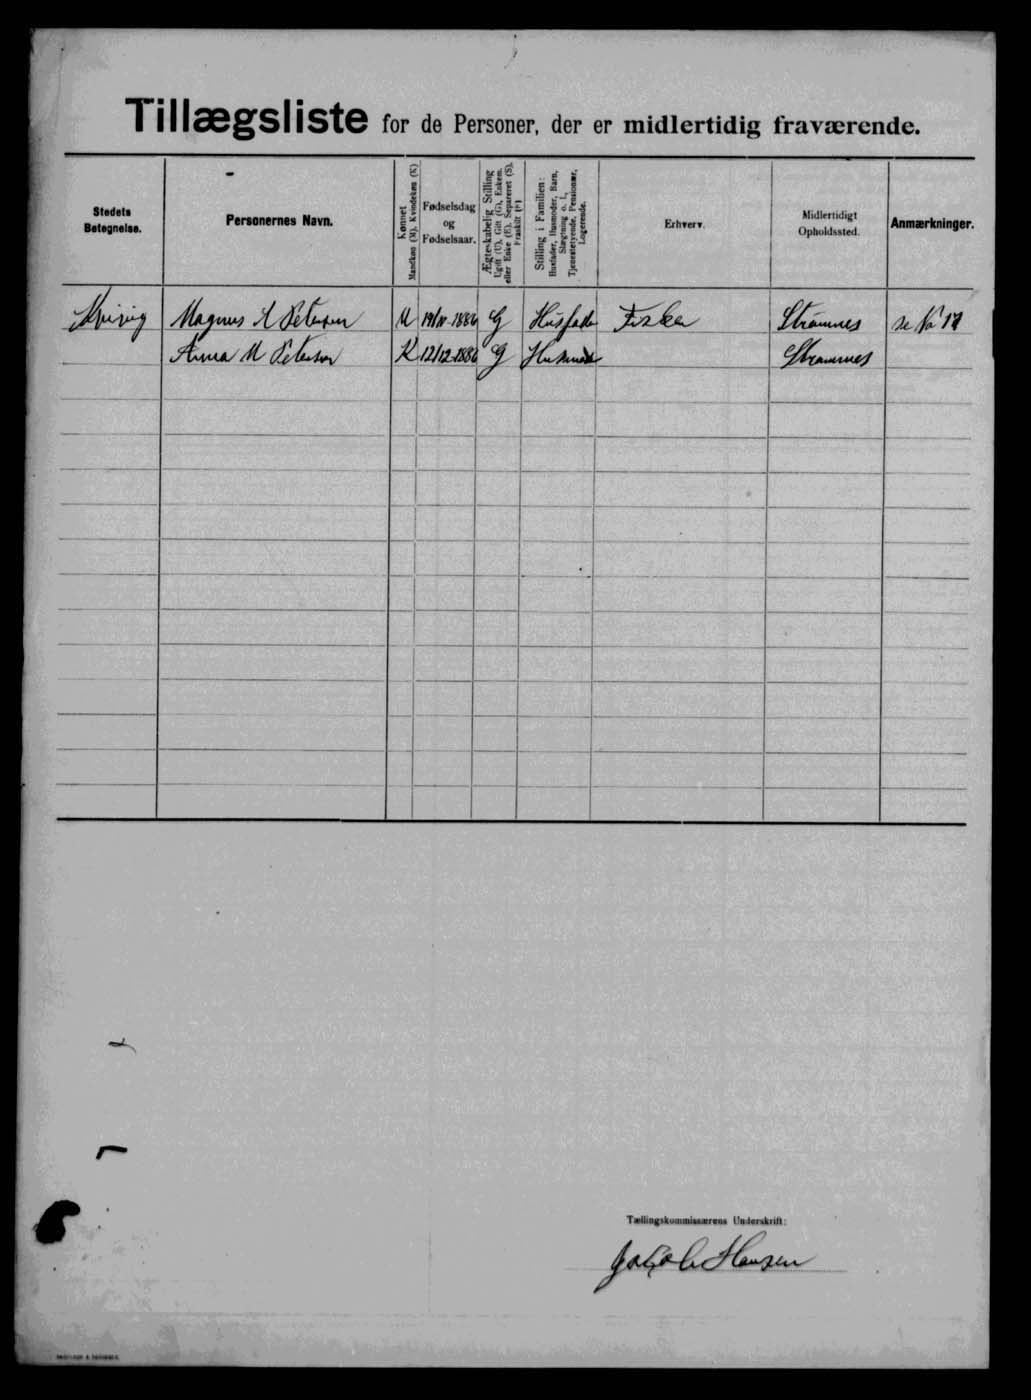 Tillægsliste for de Personer, der er midlertidig fraværende.
Stedets Betegnelse.
Personernes Navn.
Kønnet Mandkøn (M), Kvindekøn (K)
Fødselsdag og Fødselsaar.
Ægteskabelig Stilling Ugift (U), Gift (G), Enkem. eller Enke (E), Separeret (S), Fraskilt (F)
Stilling i Familien: Husfader, Husmoder, Barn, Slægtning o. l., Tjenestetyende, Pensionær, Logerende.
Erhverv.
Midlertidigt Opholdssted.
Anmærkninger.
Kvivig Magnus A Petersen M 1886 G Husfader Fisker Strømnes se No 17
Anna M Petersen K 12/12-1886 G Husmoder Strømnes
Tællingskommissærens Underskrift:
Jakob Hansen